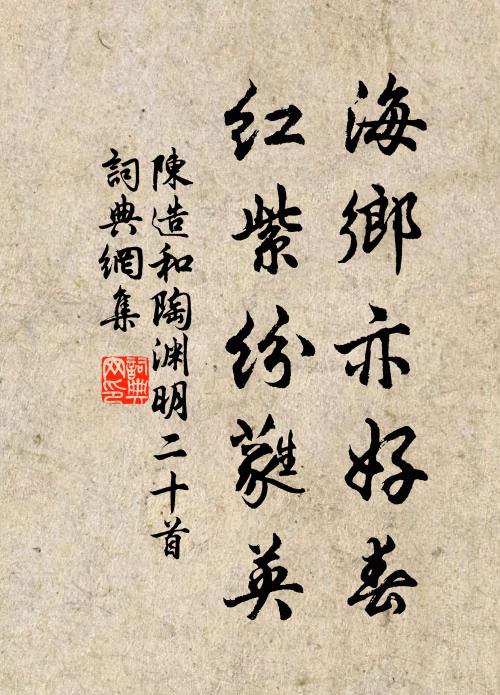 海鄉亦好春
紅紫紛蕤英
陳造和陶渊明二十首
詞典網集
詞典网印